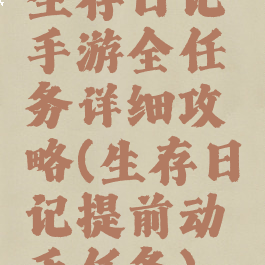 生存日记
手游全任
务详细攻
略(生存日
记提前动
手任务)